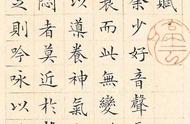 賦
余少好音聲
衰而此無變
以導養神氣
悶者莫近於
之則吟詠以